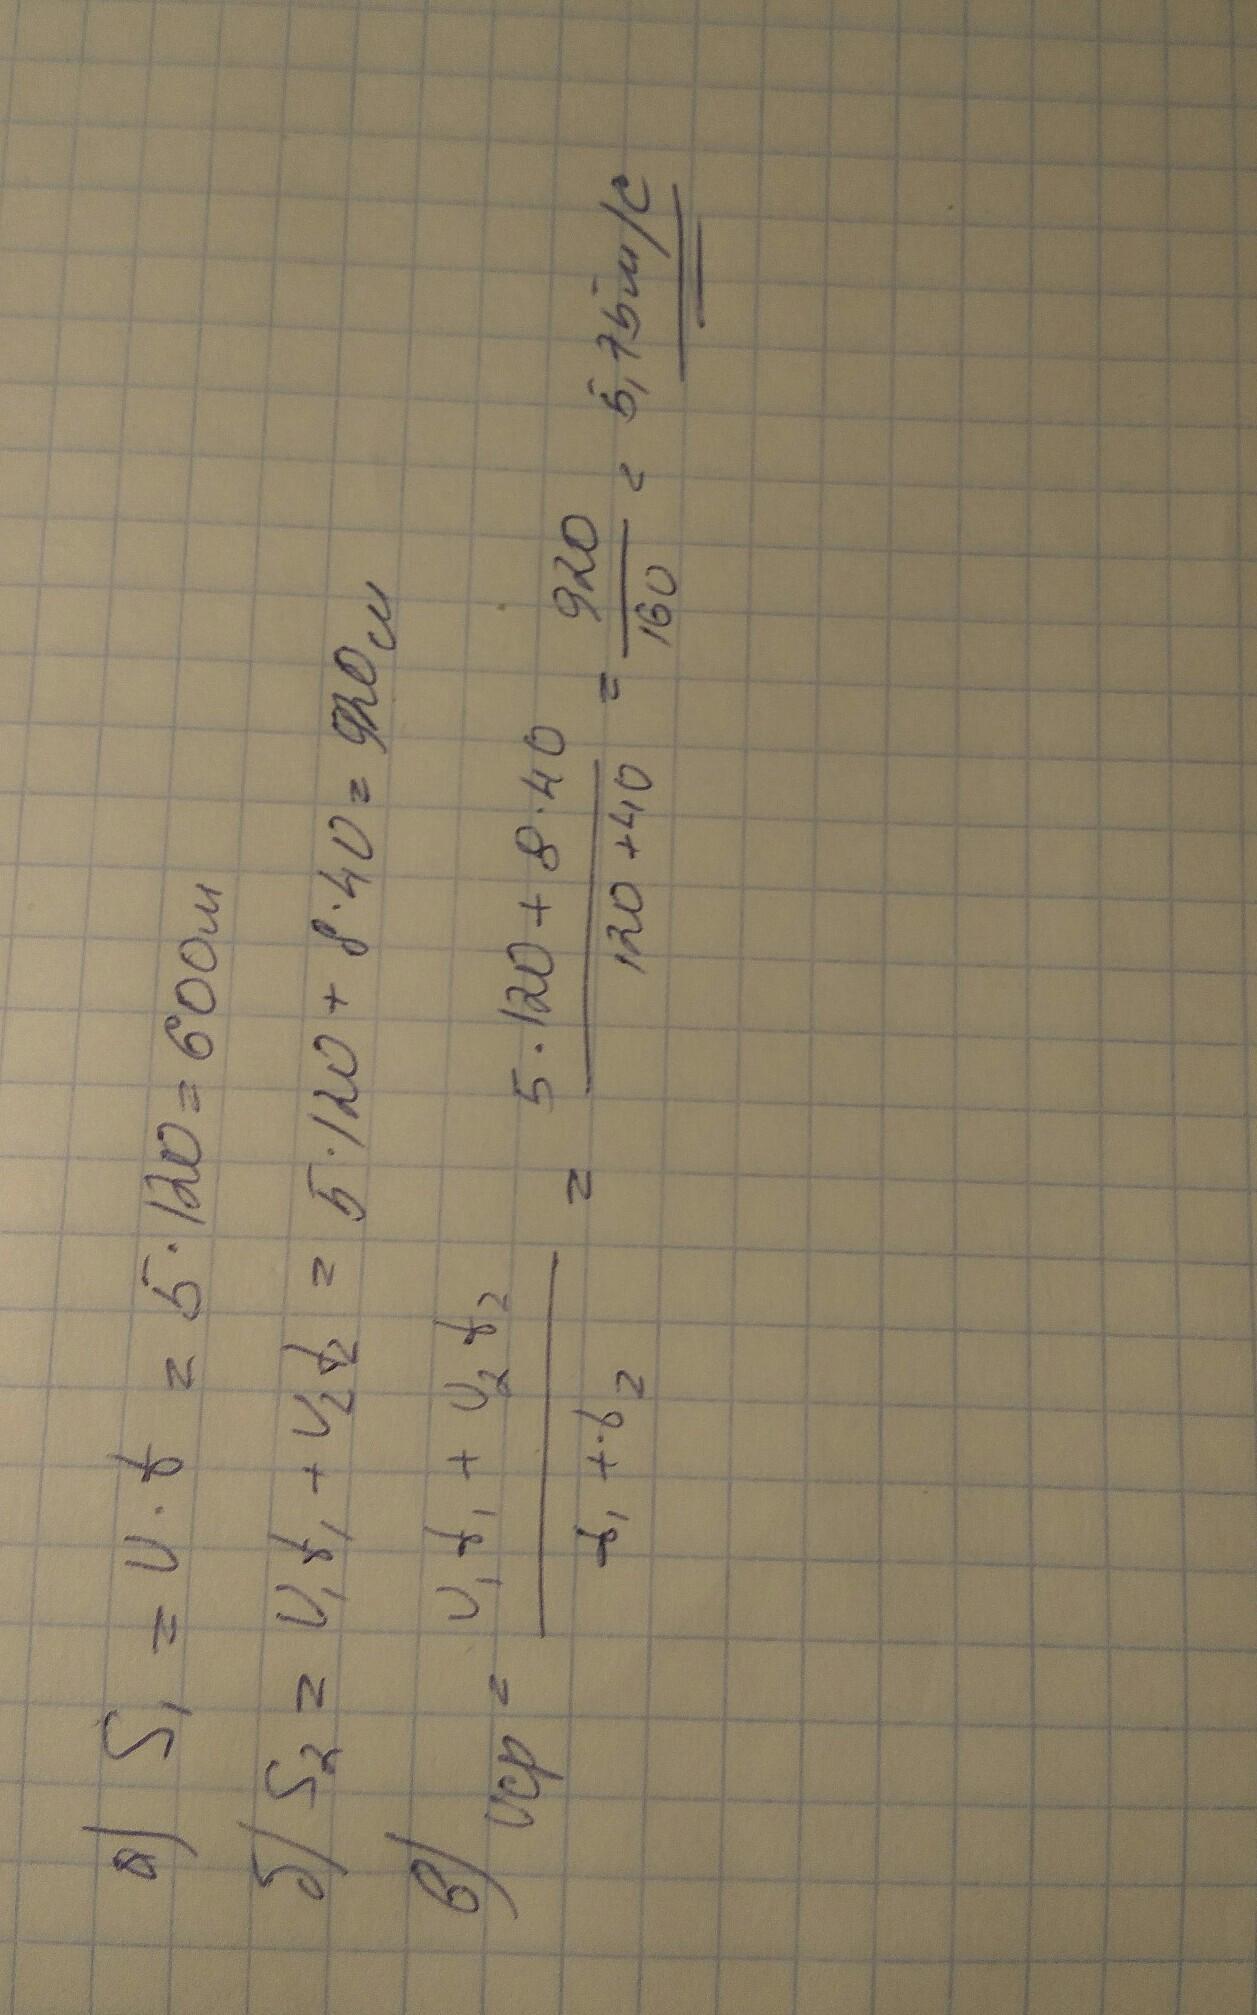 а) S₁ = υ · t = 5 · 120 = 600м
б) S₂ = υ₁t₁ + υ₂t₂ = 5 · 120 + 8 · 40 = 920м
в) υср = (υ₁t₁ + υ₂t₂) / (t₁ + t₂) = (5 · 120 + 8 · 40) / (120 + 40) = 920 / 160 = 5,75м/с